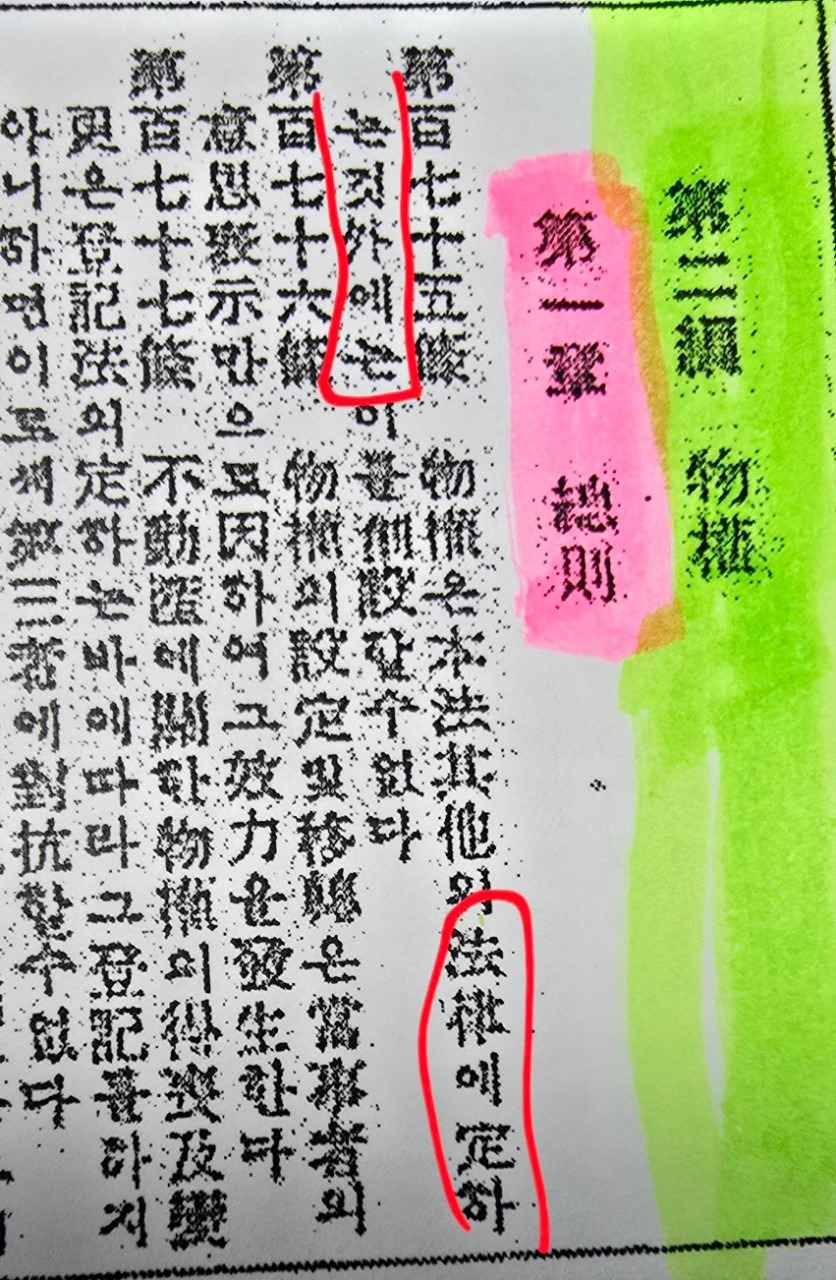 第二編 物權
第一章 總則
第百七十五條 物權은本法其他의法律에定하
는것外에는이를創設할수없다
第百七十六條 物權의設定及移轉은當事者의
意思表示만으로因하여그效力을發生한다
第百七十七條 不動産에關한物權의得喪及變
更은登記法의定하는바에따라그登記를하지
아니하면이로써第三者에對抗할수없다